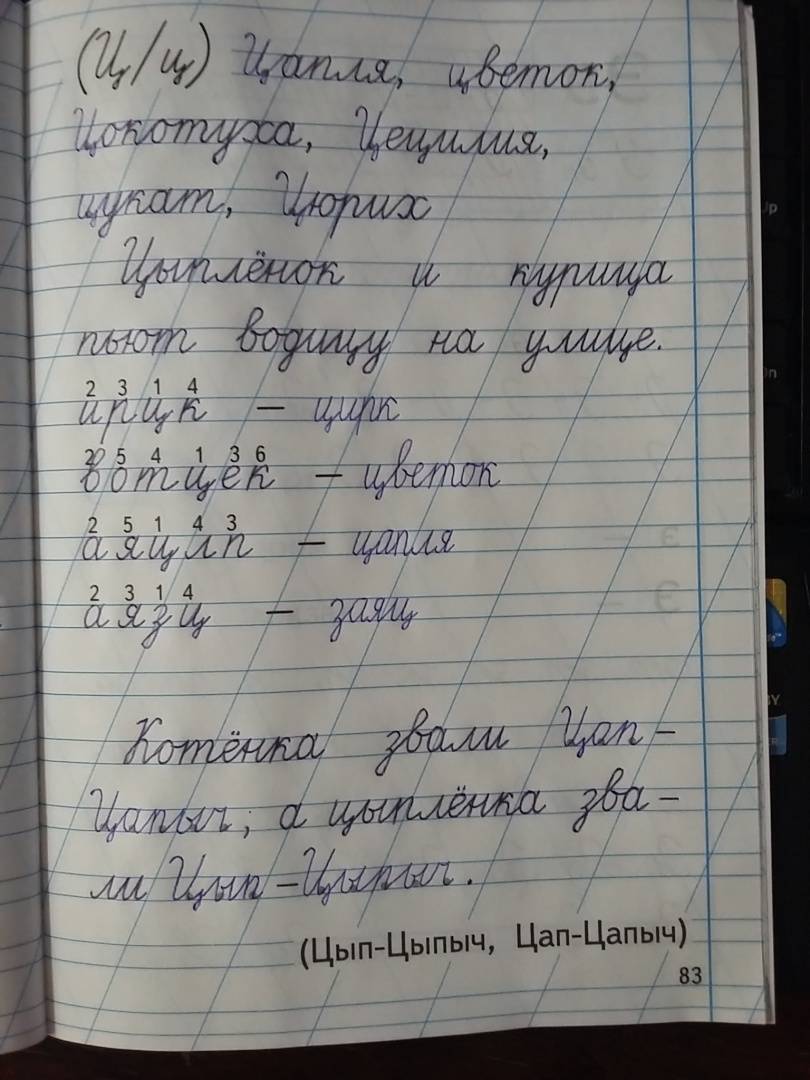 (Ц/ц) Цапля, цветок,
Цокотуха, Цецилия,
цукат, Цюрих
Цыплёнок и курица
пьют водицу на улице.
2 3 1 4
ирцк – цирк
2 5 4 1 3 6
вотцек – цветок
2 5 1 4 3
аяцлп – цапля
2 3 1 4
аязц – заяц
Котёнка звали Цап-
Цапыч, а цыплёнка зва-
ли Цып-Цыпыч.
(Цып-Цыпыч, Цап-Цапыч)
83